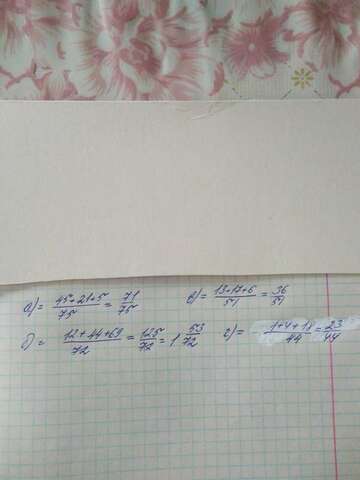 а) = (45+21+5)/75 = 71/75 в) = (13+17+6)/51 = 36/51
б) = (12+44+69)/72 = 125/72 = 1 53/72 г) = (1+4+18)/44 = 23/44